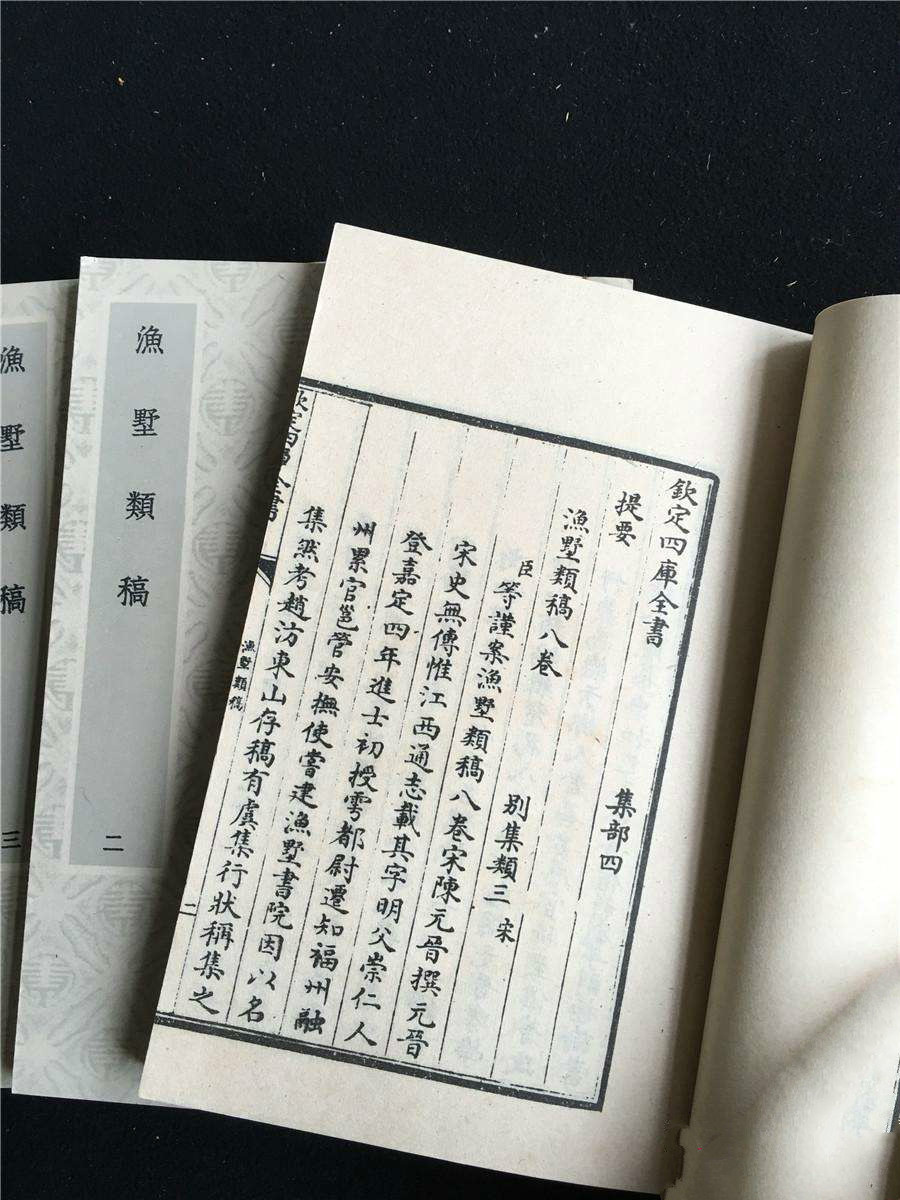 欽定四庫全書
提要　集部四
漁墅類稿八卷　別集類三 宋
臣等謹案漁墅類稿八卷宋陳元晉撰元晉
宋史無傳惟江西通志載其字明父崇仁人
登嘉定四年進士初授雩都尉遷知福州融
州累官邕管安撫使嘗建漁墅書院因以名
集然考趙汸東山存稿有虞集行狀稱集之
欽定四庫全書
漁墅類稿
二
漁墅類稿
二
漁墅類稿
三